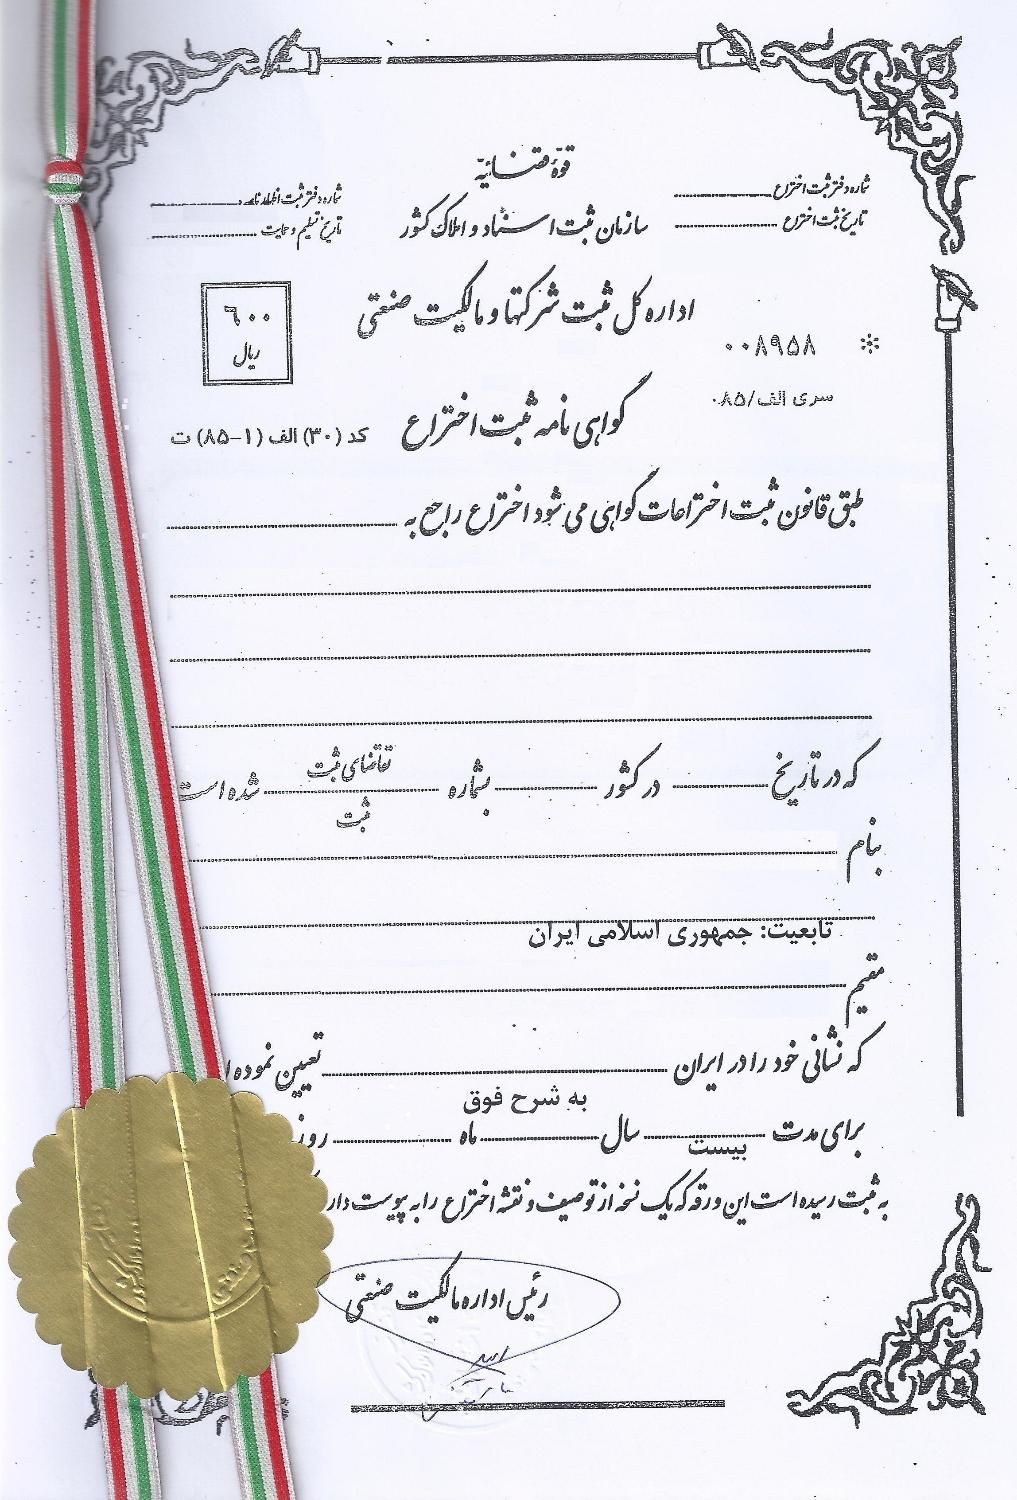 قوّهٔ قضائیّه
شماره دفتر ثبت اختراع
شماره دفتر ثبت اظهارنامه
سازمان ثبت اسناد و املاک کشور
تاریخ ثبت اختراع
تاریخ تسلیم و حمایت
اداره کل ثبت شرکتها و مالکیت صنعتی
۶۰۰
ریال
* ۰۰۸۹۵۸
سری الف/۰۸۵
گواهی نامه ثبت اختراع
کد (۳۰) الف (۱-۸۵) ت
طبق قانون ثبت اختراعات گواهی می شود اختراع راجع به
که در تاریخ در کشور بشماره تقاضای ثبت شده است
ثبت
بنام
تابعیت: جمهوری اسلامی ایران
مقیم
که نشانی خود را در ایران تعیین نموده ا
به شرح فوق
برای مدت سال ماه روز
بیست
به ثبت رسیده است این ورقه که یک نسخه از توصیف و نقشه اختراع را به پیوست دار
رئیس اداره مالکیت صنعتی